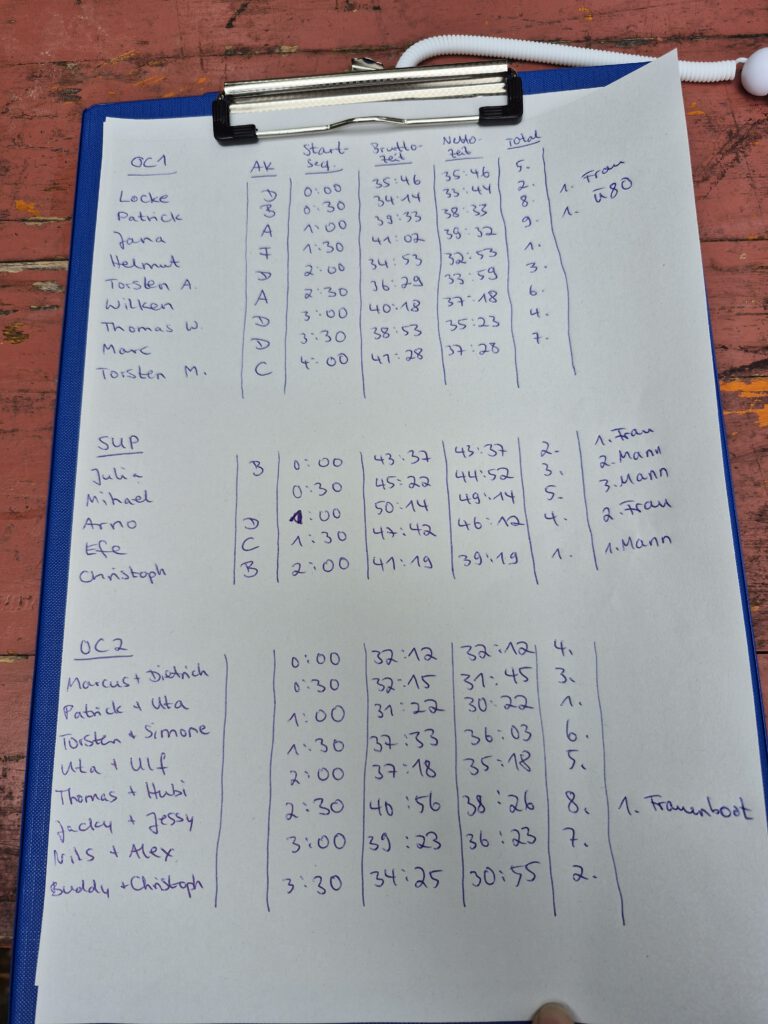 OC1 AK Start-seq. Brutto-zeit Netto-zeit Total
Locke D 0:00 35:46 35:46 5.
Patrick B 0:30 34:14 33:44 2.
Jana A 1:00 39:33 38:33 8. 1. Frau
Helmut F 1:30 41:02 39:32 9. 1. ü80
Torsten A. D 2:00 34:53 32:53 1.
Wilken A 2:30 36:29 33:59 3.
Thomas W. D 3:00 40:18 37:18 6.
Marc D 3:30 38:53 35:23 4.
Torsten M. C 4:00 41:28 37:28 7.
SUP
Julia B 0:00 43:37 43:37 2. 1. Frau
Mihael 0:30 45:22 44:52 3. 2. Mann
Arno D 1:00 50:14 49:14 5. 3. Mann
Efe C 1:30 47:42 46:12 4. 2. Frau
Christoph B 2:00 41:19 39:19 1. 1. Mann
OC2
Marcus + Dietrich 0:00 32:12 32:12 4.
Patrick + Uta 0:30 32:15 31:45 3.
Torsten + Simone 1:00 31:22 30:22 1.
Uta + Ulf 1:30 37:33 36:03 6.
Thomas + Hubi 2:00 37:18 35:18 5.
Jacky + Jessy 2:30 40:56 38:26 8. 1. Frauenboot
Nils + Alex 3:00 39:23 36:23 7.
Buddy + Christoph 3:30 34:25 30:55 2.